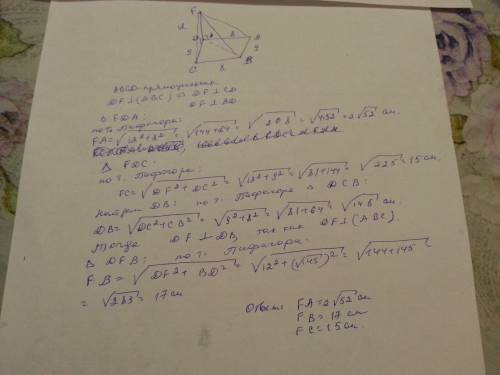 F
12
D
A
8
9
9
C
8
B
ABCD - прямоугольник
DF⊥(ABC) => DF⊥CD
DF⊥AD.
Δ FDA:
по т. Пифагора:
FA=√12²+8² = √144+64 = √208 = √4·52 = 2√52 см.
Δ FDC:
по т. Пифагора:
FC=√DF²+DC² = √12²+9² = √81+144 = √225 = 15 см.
Найдем DB: по т. Пифагора Δ DCB:
DB=√DC²+CB² = √9²+8² = √81+64 = √145 см.
Тогда DF⊥DB, так как DF⊥(ABC).
Δ DFB: по т. Пифагора:
FB=√DF²+BD² = √12²+(√145)² = √144+145 =
= √283 = 17 см
Ответ: FA=2√52 см
FB=17 см
FC=15 см.